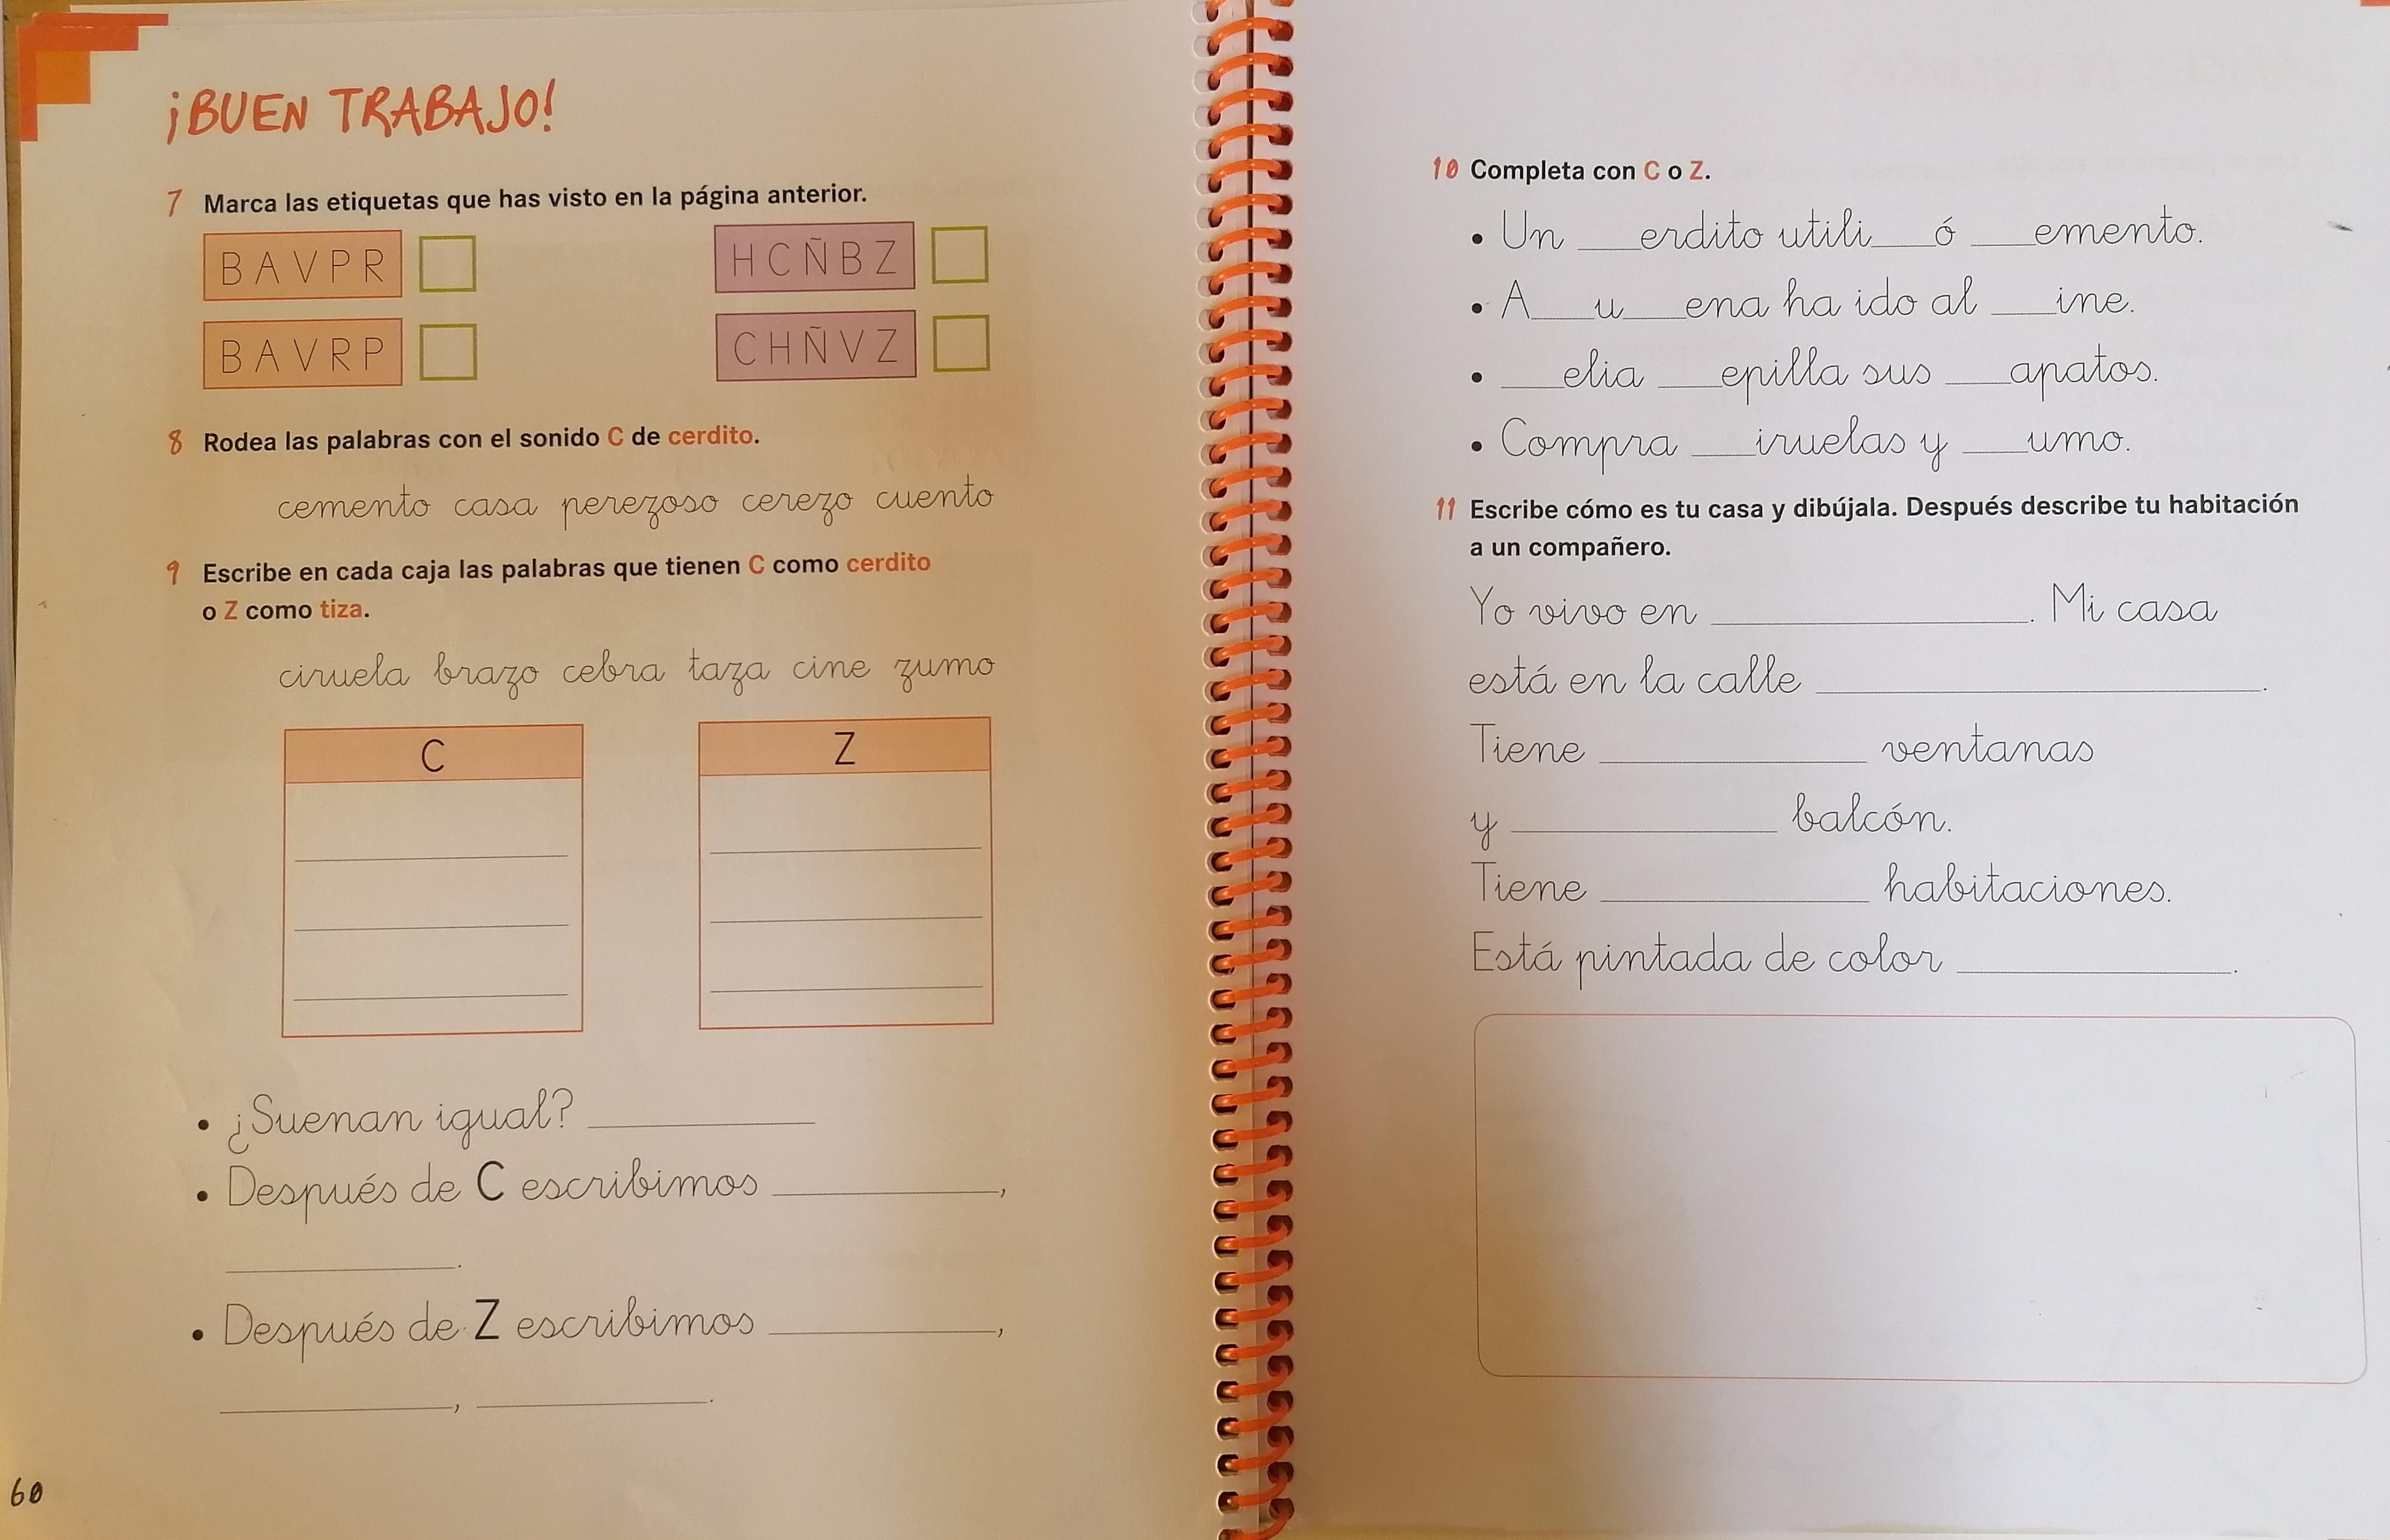 ¡BUEN TRABAJO!
7 Marca las etiquetas que has visto en la página anterior.
B A V P R
H C Ñ B Z
B A V R P
C H Ñ V Z
8 Rodea las palabras con el sonido C de cerdito.
cemento casa perezoso cerezo cuento
9 Escribe en cada caja las palabras que tienen C como cerdito
o Z como tiza.
ciruela brazo cebra taza cine zumo
C
Z
• ¿Suenan igual? ____
• Después de C escribimos ____,
____.
• Después de Z escribimos ____,
____, ____.
60
10 Completa con C o Z.
• Un ___erdito utili___ó ___emento.
• A___u___ena ha ido al ___ine.
• ___elia ___epilla sus ___apatos.
• Compra ___iruelas y ___umo.
11 Escribe cómo es tu casa y dibújala. Después describe tu habitación
a un compañero.
Yo vivo en ____. Mi casa
está en la calle ____.
Tiene ____ ventanas
y ____ balcón.
Tiene ____ habitaciones.
Está pintada de color ____.